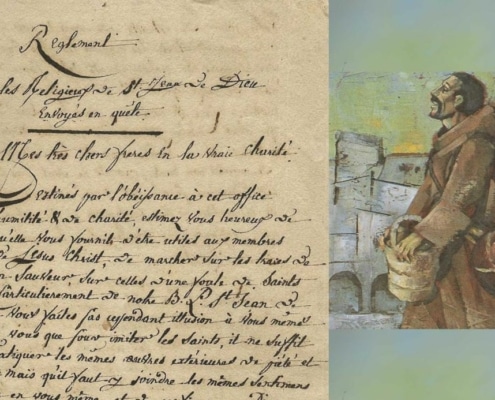 Reglement
les Religieux de St Jean de Dieu
Envoyés en quête.
Mes très chers freres En la vraie charité
Destinés par l'obéissance à cet office
umilité & de charité, estimez vous heureux de
qu'elle vous fournit d'être utiles aux membres
de Jésus Christ, de marcher sur les traces de
n Sauveur, sur celles d'une foule de Saints
Particulièrement de nôtre B. P. St Jean de
Vous faites pas cependant illusion à vous mêmes
vous que pour imiter les Saints, il ne suffit
ratiquer les mêmes œuvres extérieures de piété et
mais qu'il faut y joindre les mêmes sentimens
en vous même et de